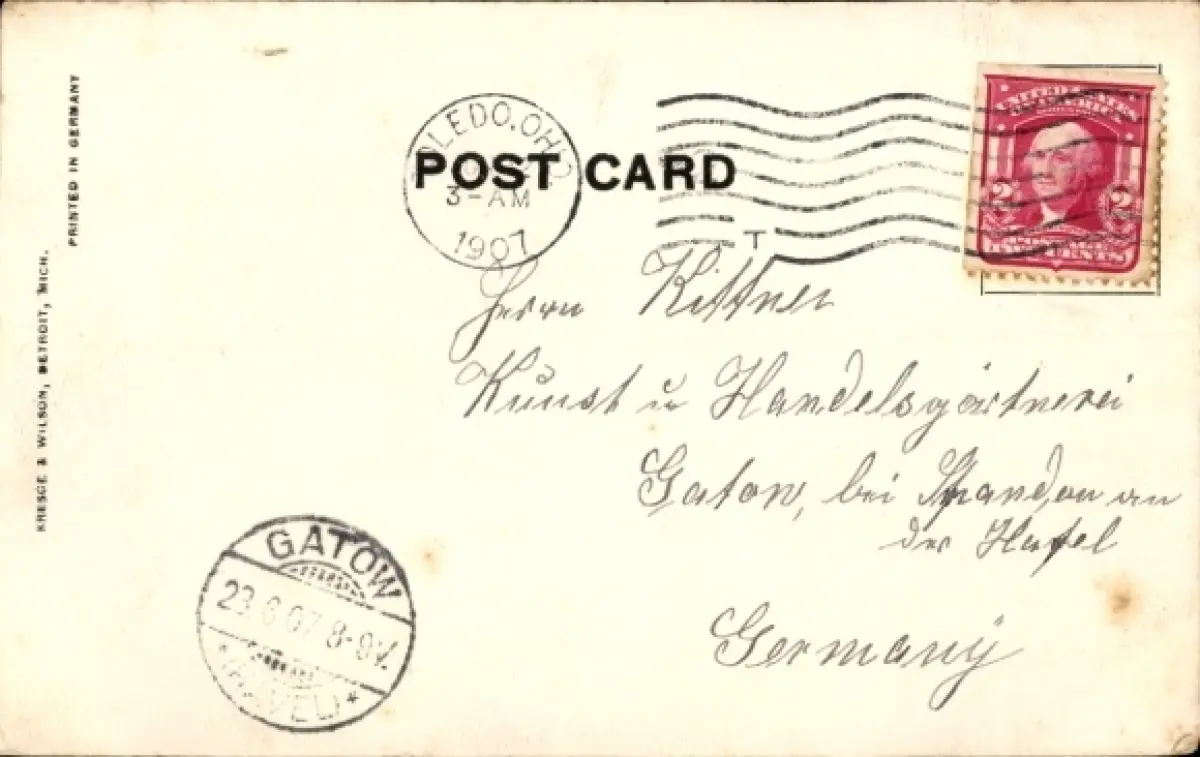 PRINTED IN GERMANY
KRESGE & WILSON, DETROIT, MICH.
TOLEDO, OHIO
3-AM
1907
POST CARD
T
UNITED STATES
2 2
TWO CENTS
Herrn Kittner
Kunst u Handelsgärtnerei
Gatow, bei Spandau an
der Havel
Germany
GATOW
23.6.07 8-9V.
*(HAVEL)*